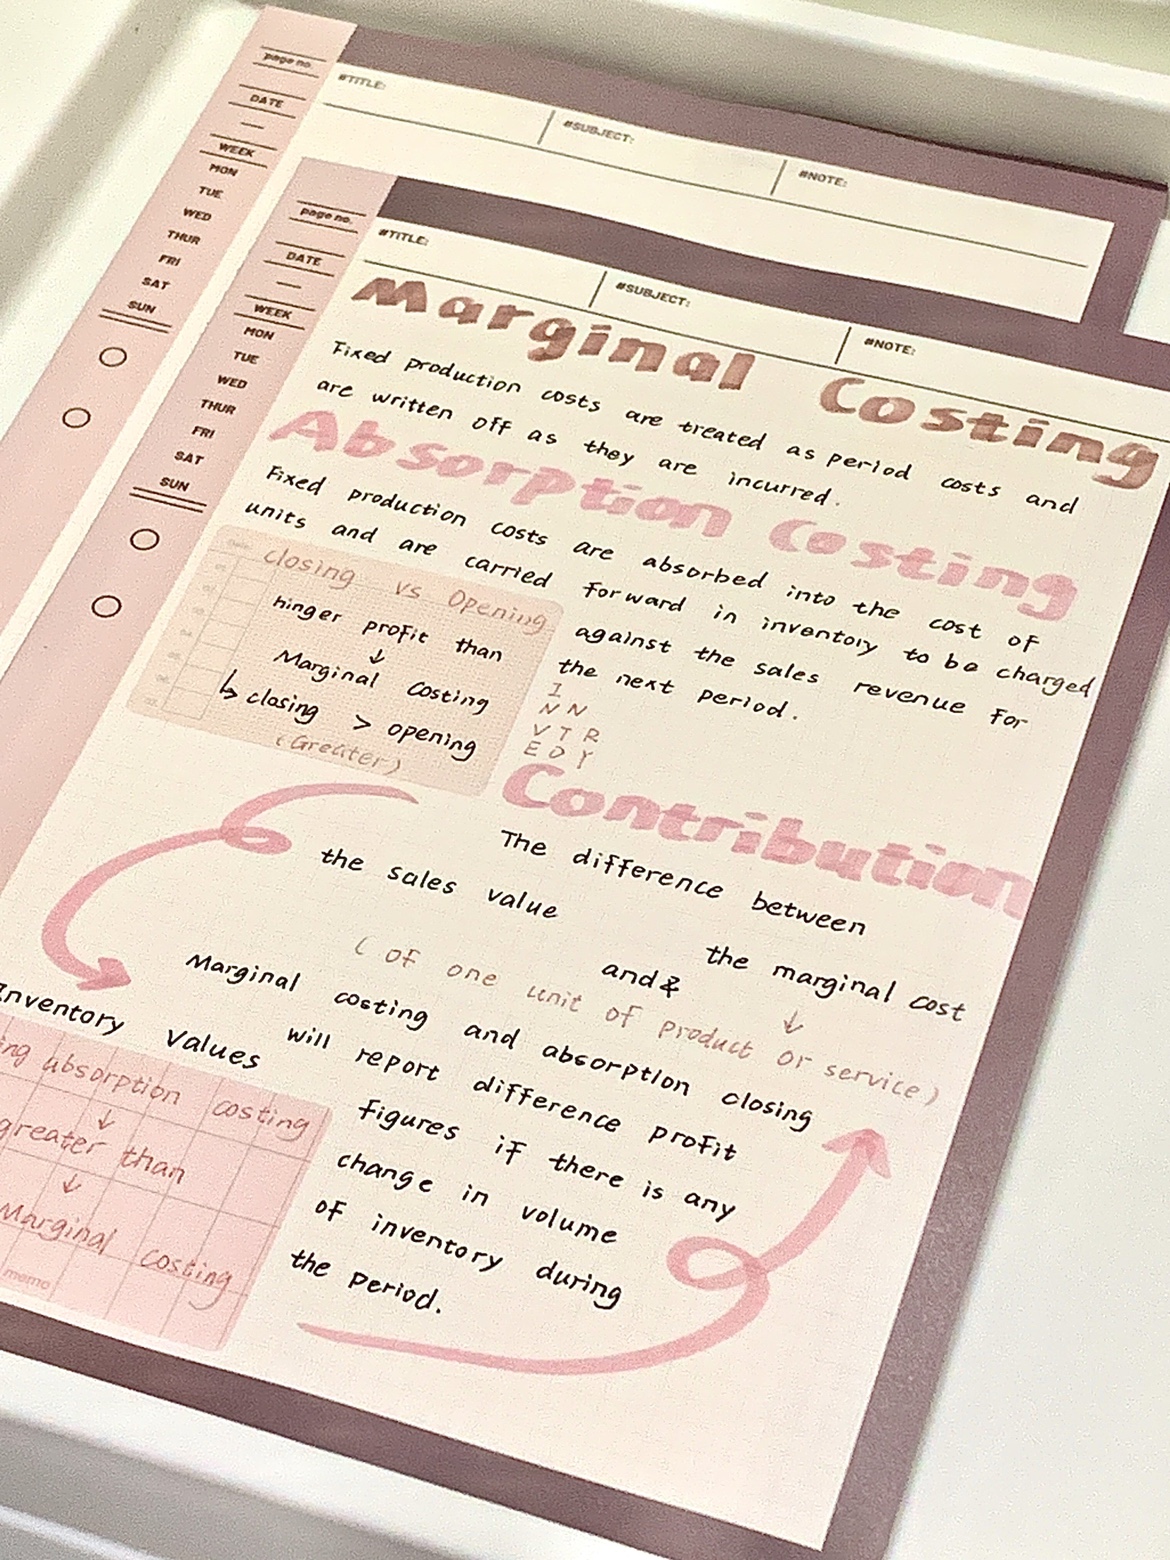 page no.
DATE
WEEK
MON
TUE
WED
THUR
FRI
SAT
SUN
#TITLE:
#SUBJECT:
#NOTE:
page no.
DATE
WEEK
MON
TUE
WED
THUR
FRI
SAT
SUN
#TITLE:
#SUBJECT:
#NOTE:
Marginal Costing
Fixed production costs are treated as period costs and
are written off as they are incurred.
Absorption Costing
Fixed production costs are absorbed into the cost of
units and are carried forward in inventory to be charged
against the sales revenue for
the next period.
I
N N
V T R
E O Y
closing vs Opening
hinger profit than
↓
Marginal costing
↳ closing > opening
(Greater)
Contribution
The difference between
the sales value and& the marginal cost
↓
(of one unit of product or service)
Marginal costing and absorption closing
will report difference profit
figures if there is any
change in volume
of inventory during
the period.
Inventory Values
absorption costing
↓
greater than
↓
Marginal costing
memo